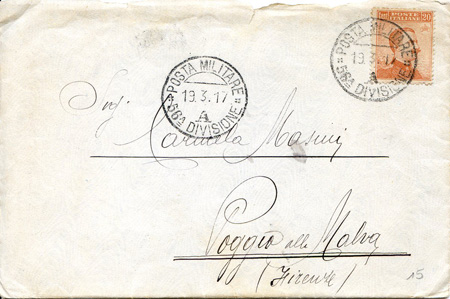 POSTE ITALIANE 20
POSTA MILITARE
19.3.17
A
56ª DIVISIONE
POSTA MILITARE
19.3.17
A
56ª DIVISIONE
Sig.
Carmela Masini
Poggio alla Malva
(Firenze)
15